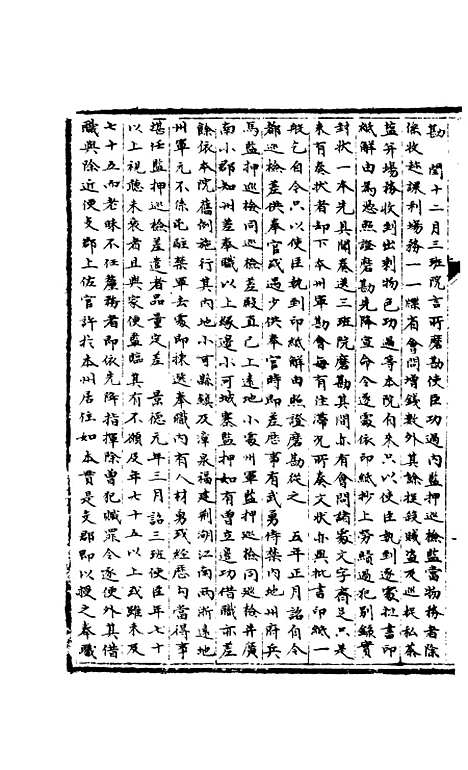 勘 閏十二月三班院言所磨勘使臣功過內監押巡檢監當物務者除
係收趂課利場務一一喋有會問增錢數外其餘捉殺賊盜及巡捉私茶
鹽并場務收到出剩物色功過等本院自來只以使臣執到逐處批書印
紙解由爲憑照證磨勘先降宣命令逐處依印紙抄上勞績過犯別錄實
封狀一本先具開奏送三班院磨勘其間亦有會問諸處文字齊足只是
未有奏狀者却下本州軍勘會每有注滯况所奏文狀亦與批書印紙一
般乞自今只以使臣執到印紙解由照證磨勘從之 五年正月詔自今
都巡檢差供奉官或過少供奉官時即差歷事有武勇侍禁內地州府兵
馬監押巡檢同巡檢差殿直已上遠地小處州軍監押巡檢同巡檢并廣
南小郡知州差奉職以上緣邊小可城寨監押如有曾立邊功借職亦差
餘依本院舊例施行其內地小可縣鎮及漳泉福建荆湖江南兩浙遠地
州軍元不係屯駐禁軍去處即揀選奉職內有人材勇或經歷勾當得事
堪任監押巡檢差遣者品量定差 景德元年三月詔三班使臣年七十
以上視聽未衰者且與家便監臨其有不願及年七十五以上或雖未及
七十五而老昧不任釐務者即依先降指揮除曾犯贓罪令逐便外其借
職與除近便文郡上佐官許於本州居住如本貫是文郡即以授之奉職